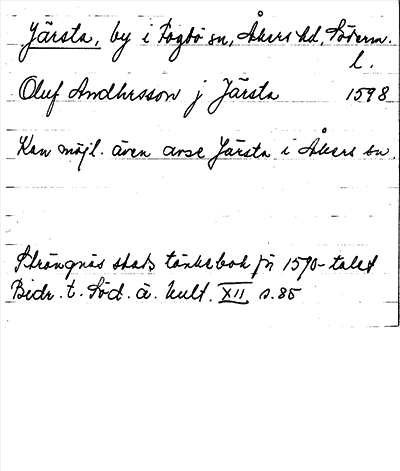 Järsta, by i Fogdö sn, Åkers hd, Söderm.
l.
Oluf Andhersson j Järsta 1598
Kan möjl. även avse Järsta i Åkers sn
Strängnäs stads tänkebok fr 1590-talet
Bidr. t. Söd. ä. kult. XII s. 85